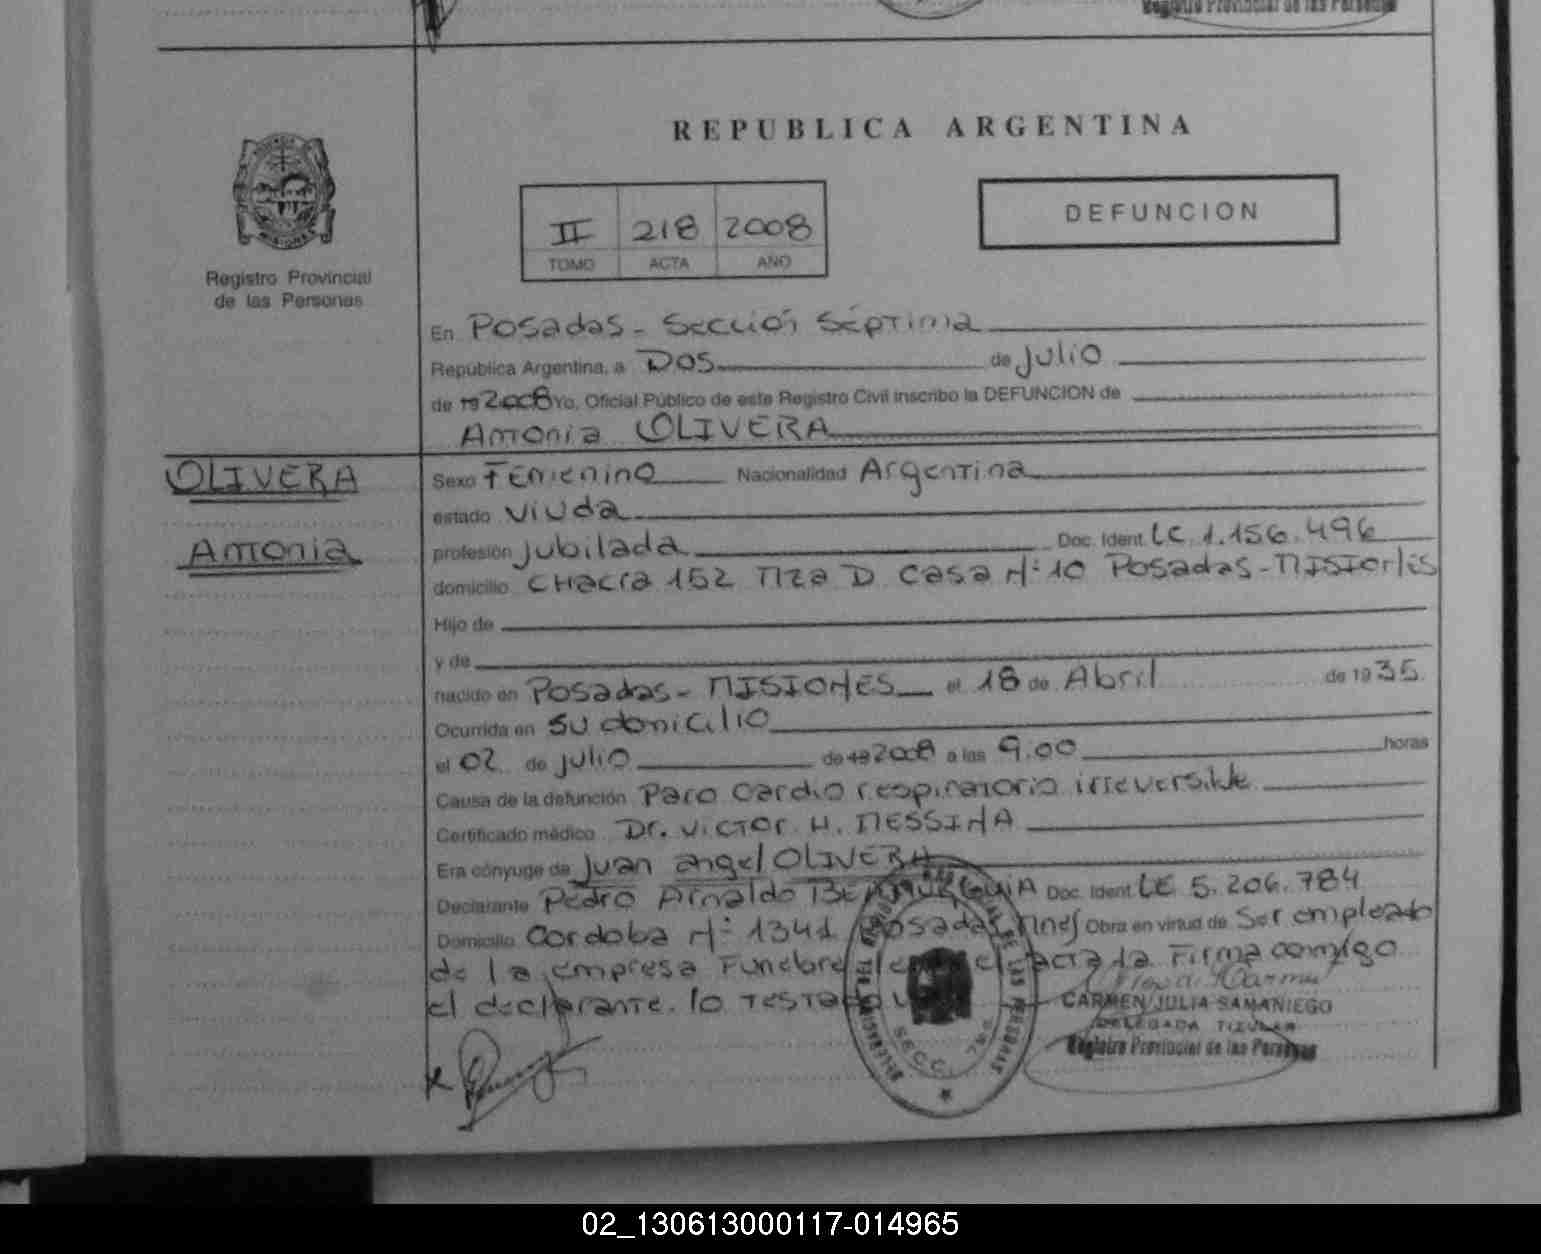 Registro Provincial de las Personas
REPUBLICA ARGENTINA
II 218 2008
TOMO ACTA AÑO
DEFUNCION
Registro Provincial
de las Personas
En Posadas - Sección Séptima
República Argentina, a Dos de Julio
de 19 2008 Yo, Oficial Público de este Registro Civil inscribo la DEFUNCION de
Antonia OLIVERA
OLIVERA
Antonia
Sexo Femenino Nacionalidad Argentina
estado Viuda
profesión Jubilada Doc. Ident. LC. 1.156.496
domicilio CHacra 152 Mza D Casa N° 10 Posadas - MISIONES
Hijo de
y de
nacido en Posadas - MISIONES el 18 de Abril de 1935
Ocurrida en su domicilio
el 02 de Julio de 19 2008 a las 9.00 horas
Causa de la defunción Paro Cardio respiratorio irreversible
Certificado médico Dr. Victor H. MESSINA
Era cónyuge de Juan angel OLIVERA
Declarante Pedro Arnaldo Doc. Ident. LE 5.206.784
Domicilio Cordoba N° 1341 Posadas Mnes Obra en virtud de Ser empleado
de la empresa Funebre acta la Firma conmigo
el declarante. lo Testado
CARMEN JULIA SAMANIEGO
DELEGADA TITULAR
Registro Provincial de las Personas
SECC. 7ma
02_130613000117-014965